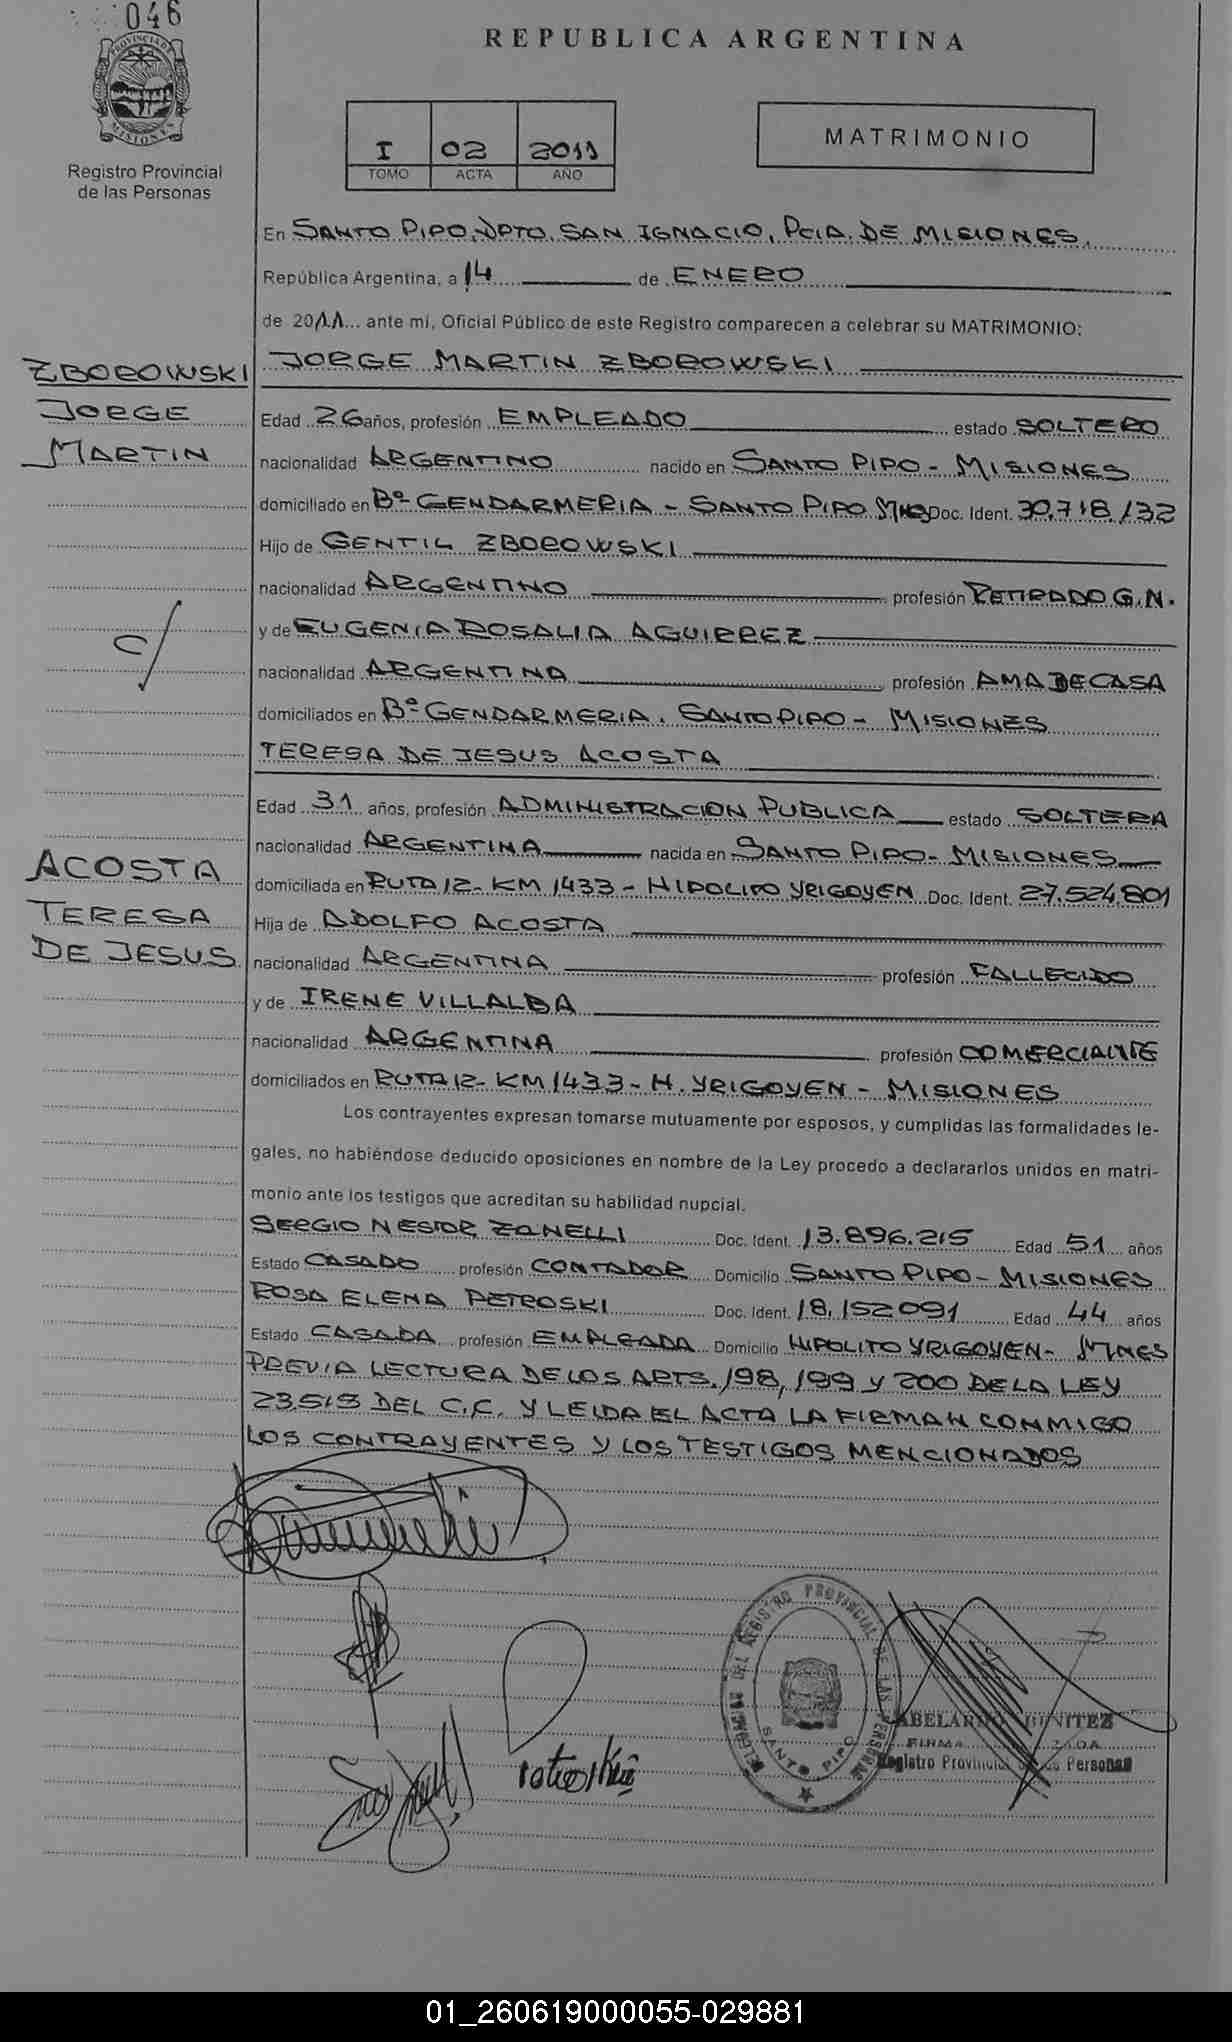 046
PROVINCIA DE MISIONES
Registro Provincial
de las Personas
REPUBLICA ARGENTINA
I 02 2011
TOMO ACTA AÑO
MATRIMONIO
En SANTO PIPO, DPTO. SAN IGNACIO, PCIA. DE MISIONES,
República Argentina, a 14 de ENERO
de 2011 ... ante mi, Oficial Público de este Registro comparecen a celebrar su MATRIMONIO:
JORGE MARTIN ZBOROWSKI
ZBOROWSKI
JORGE
MARTIN
Edad 26 años, profesión EMPLEADO estado SOLTERO
nacionalidad ARGENTINO nacido en SANTO PIPO - MISIONES
domiciliado en Bº GENDARMERIA - SANTO PIPO MNES Doc. Ident. 30.718.132
Hijo de GENTIL ZBOROWSKI
nacionalidad ARGENTINO profesión RETIRADO G.N.
c/
y de EUGENIA ROSALIA AGUIRREZ
nacionalidad ARGENTINA profesión AMA DE CASA
domiciliados en Bº GENDARMERIA. SANTO PIPO - MISIONES
TERESA DE JESUS ACOSTA
Edad 31 años, profesión ADMINISTRACION PUBLICA estado SOLTERA
nacionalidad ARGENTINA nacida en SANTO PIPO - MISIONES
ACOSTA
TERESA
DE JESUS
domiciliada en RUTA 12 - KM 1433 - HIPOLITO YRIGOYEN Doc. Ident. 27.524.801
Hija de ADOLFO ACOSTA
nacionalidad ARGENTINA profesión FALLECIDO
y de IRENE VILLALBA
nacionalidad ARGENTINA profesión COMERCIANTE
domiciliados en RUTA 12 - KM 1433 - H. YRIGOYEN - MISIONES
Los contrayentes expresan tomarse mutuamente por esposos, y cumplidas las formalidades le-
gales, no habiéndose deducido oposiciones en nombre de la Ley procedo a declararlos unidos en matri-
monio ante los testigos que acreditan su habilidad nupcial.
SERGIO NESTOR ZANELLI Doc. Ident. 13.896.215 Edad 51 años
Estado CASADO profesión CONTADOR Domicilio SANTO PIPO - MISIONES
ROSA ELENA PETROSKI Doc. Ident. 18.152091 Edad 44 años
Estado CASADA profesión EMPLEADA Domicilio HIPOLITO YRIGOYEN - MNES
PREVIA LECTURA DE LOS ARTS. 198, 199 Y 200 DE LA LEY
23.515 DEL C.C. Y LEIDA EL ACTA LA FIRMAN CONMIGO
LOS CONTRAYENTES Y LOS TESTIGOS MENCIONADOS
DEL REGISTRO PROVINCIAL DE LAS PERSONAS
SANTO PIPO
ABELARDO BENITEZ
FIRMA
Registro Provincial de las Personas
01_260619000055-029881